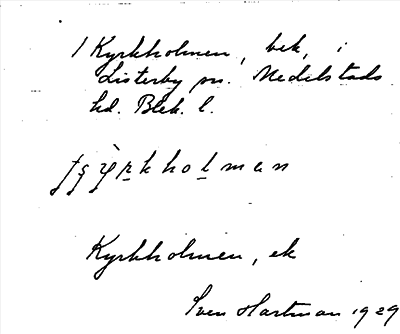 1 Kyrkholmen, bek, i
Listerby sn. Medelstads
hd. Blek. l.
Kyrkholmen, ek
Sven Hartman 1929